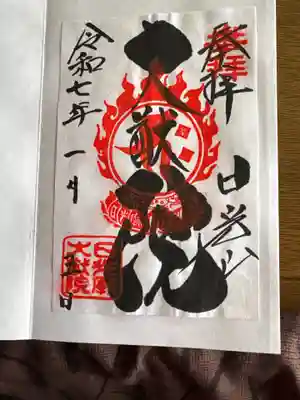 奉拝
日光山
大猷院
令和七年一月五日
日光山
大猷院